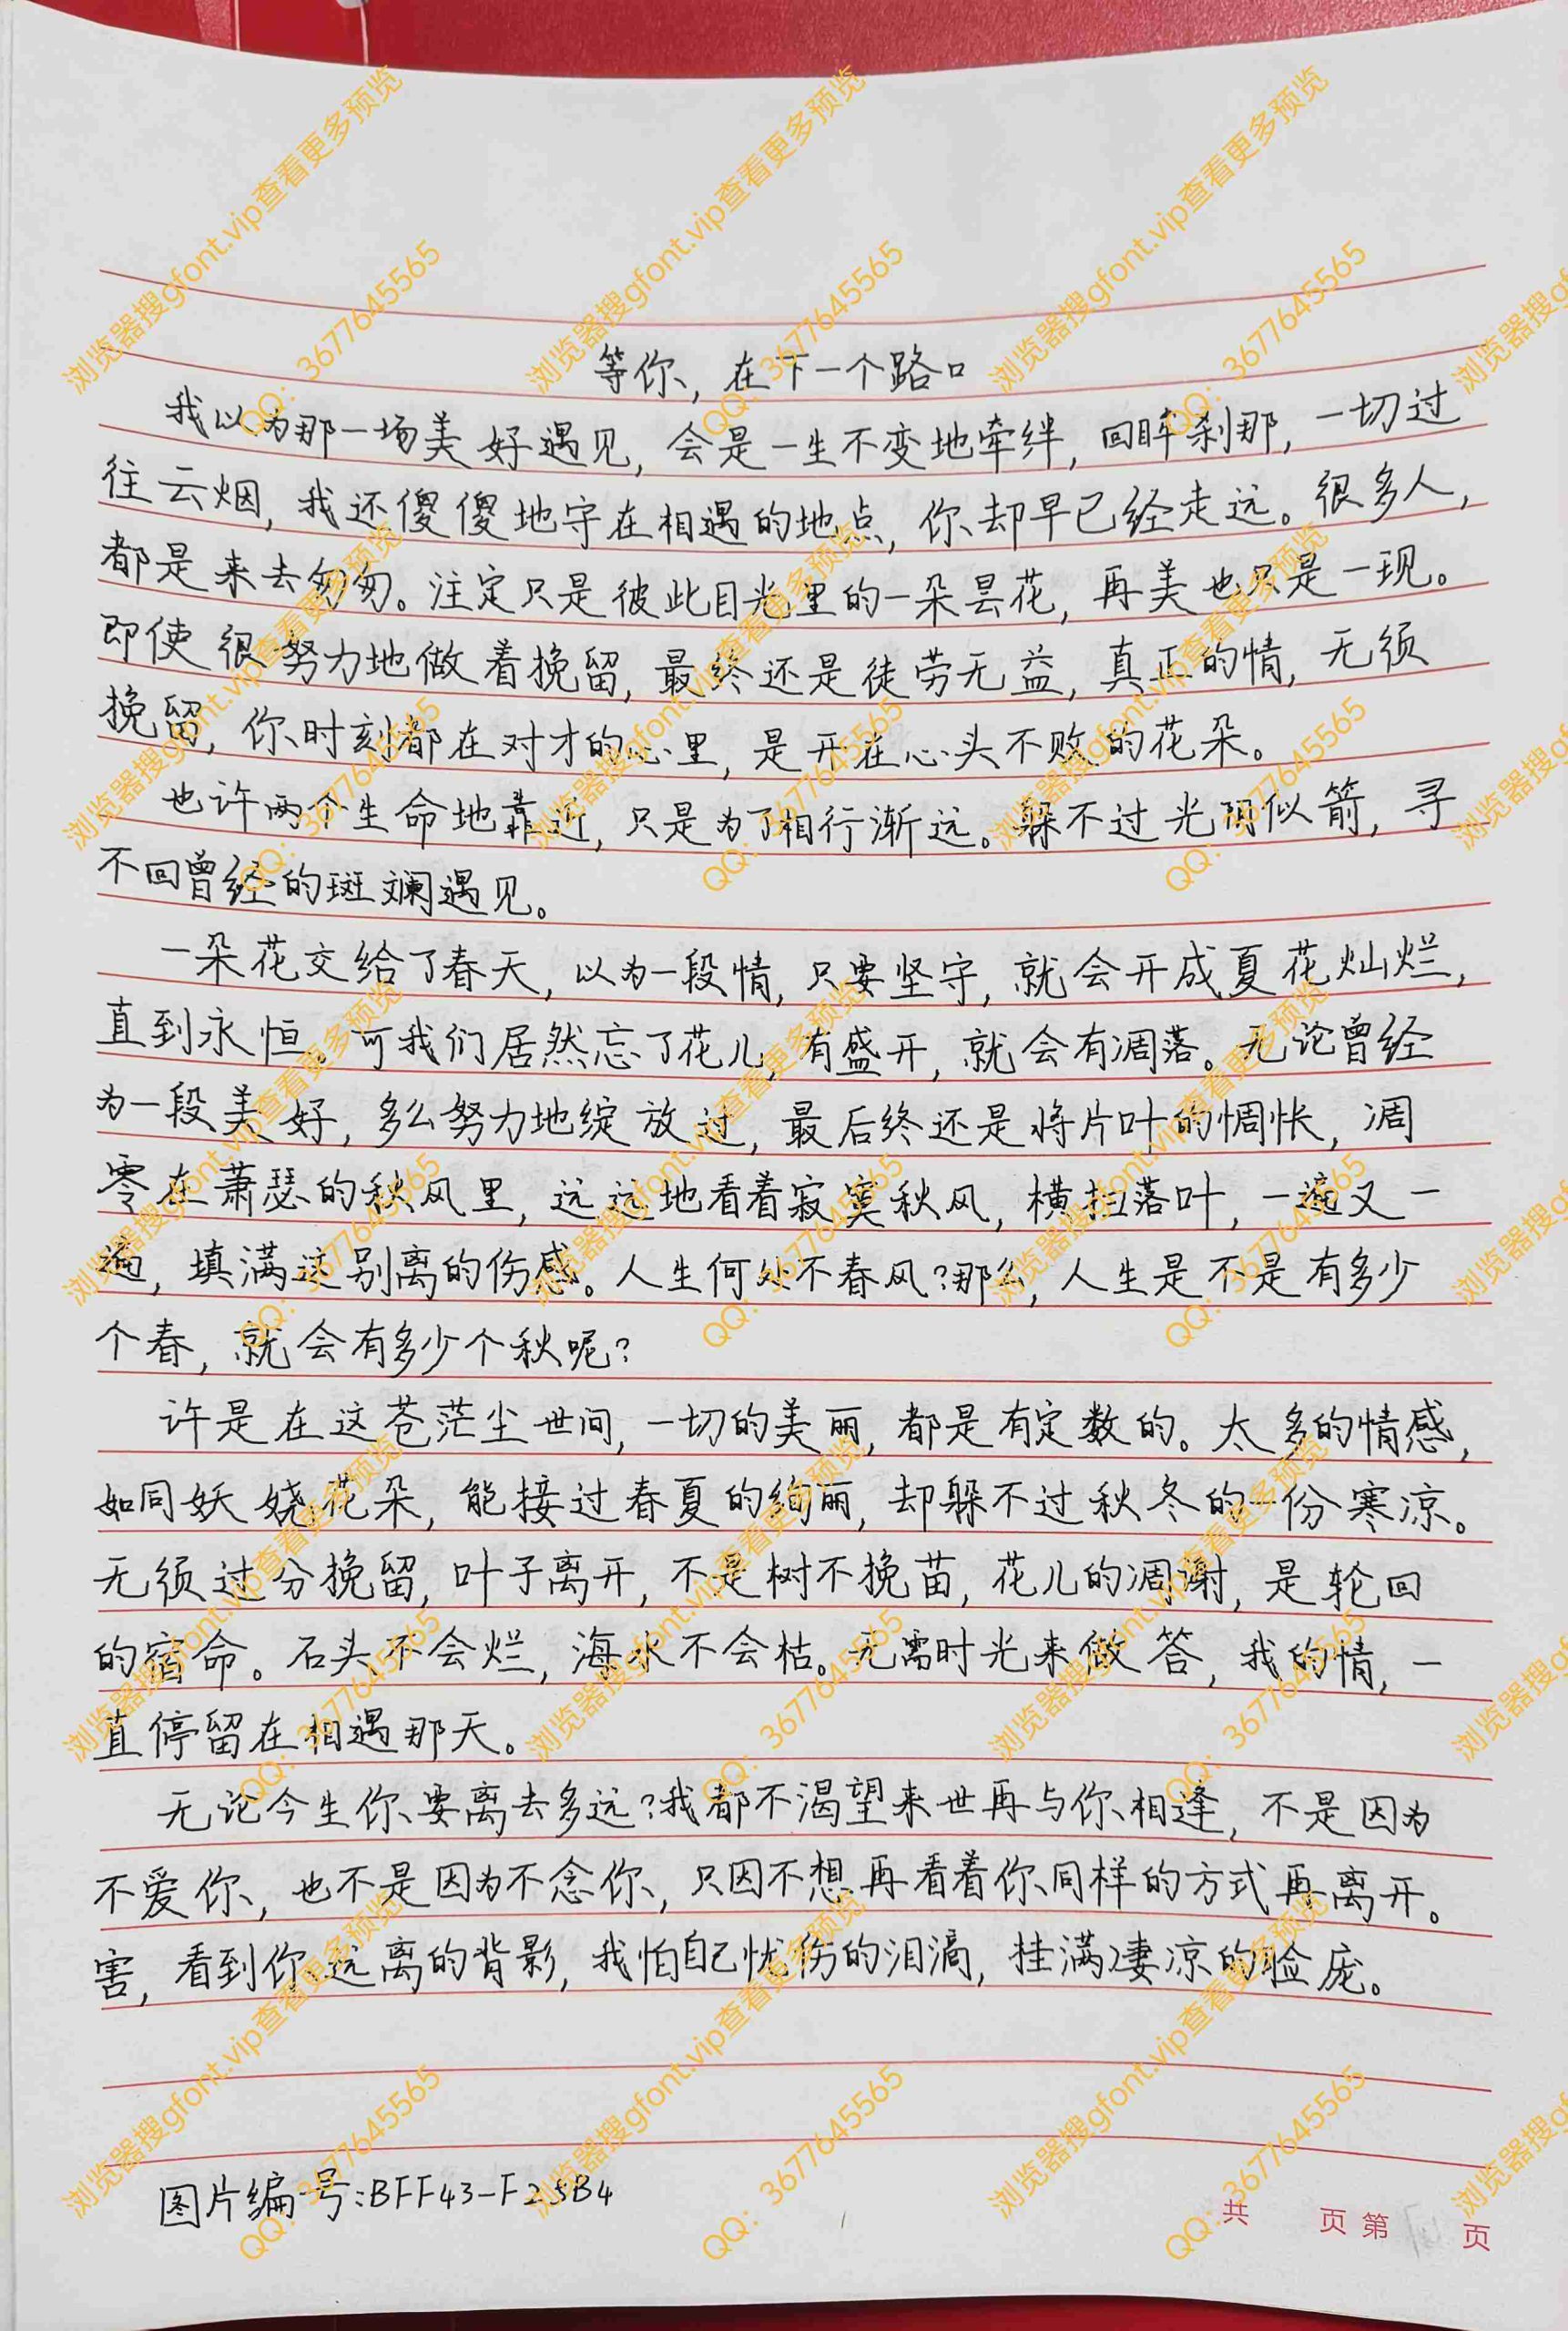 等你，在下一个路口
我以为那一场美好遇见，会是一生不变地牵绊，回眸刹那，一切过
往云烟，我还傻傻地守在相遇的地点，你却早已经走远。很多人，
都是来去匆匆。注定只是彼此目光里的一朵昙花，再美也只是一现。
即使很努力地做着挽留，最终还是徒劳无益，真正的情，无须
挽留，你时刻都在对才的心里，是开在心头不败的花朵。
也许两个生命地靠近，只是为了相行渐远。躲不过光阴似箭，寻
不回曾经的斑斓遇见。
一朵花交给了春天，以为一段情，只要坚守，就会开成夏花灿烂，
直到永恒。可我们居然忘了花儿，有盛开，就会有凋落。无论曾经
为一段美好，多么努力地绽放过，最后终还是将片叶的惆怅，凋
零在萧瑟的秋风里，远远地看着寂寞秋风，横扫落叶，一遍又一
遍，填满这别离的伤感。人生何处不春风？那么，人生是不是有多少
个春，就会有多少个秋呢？
许是在这苍茫尘世间，一切的美丽，都是有定数的。太多的情感，
如同妖娆花朵，能接过春夏的绚丽，却躲不过秋冬的一份寒凉。
无须过分挽留，叶子离开，不是树不挽苗，花儿的凋谢，是轮回
的宿命。石头不会烂，海水不会枯。无需时光来做答，我的情，一
直停留在相遇那天。
无论今生你要离去多远？我都不渴望来世再与你相逢，不是因为
不爱你，也不是因为不念你，只因不想再看着你同样的方式再离开。
害，看到你远离的背影，我怕自己忧伤的泪滴，挂满凄凉的脸庞。
图片编号：BFF43-F25B4
共 页 第 页
浏览器搜gfont.vip查看更多预览
QQ：3677645565